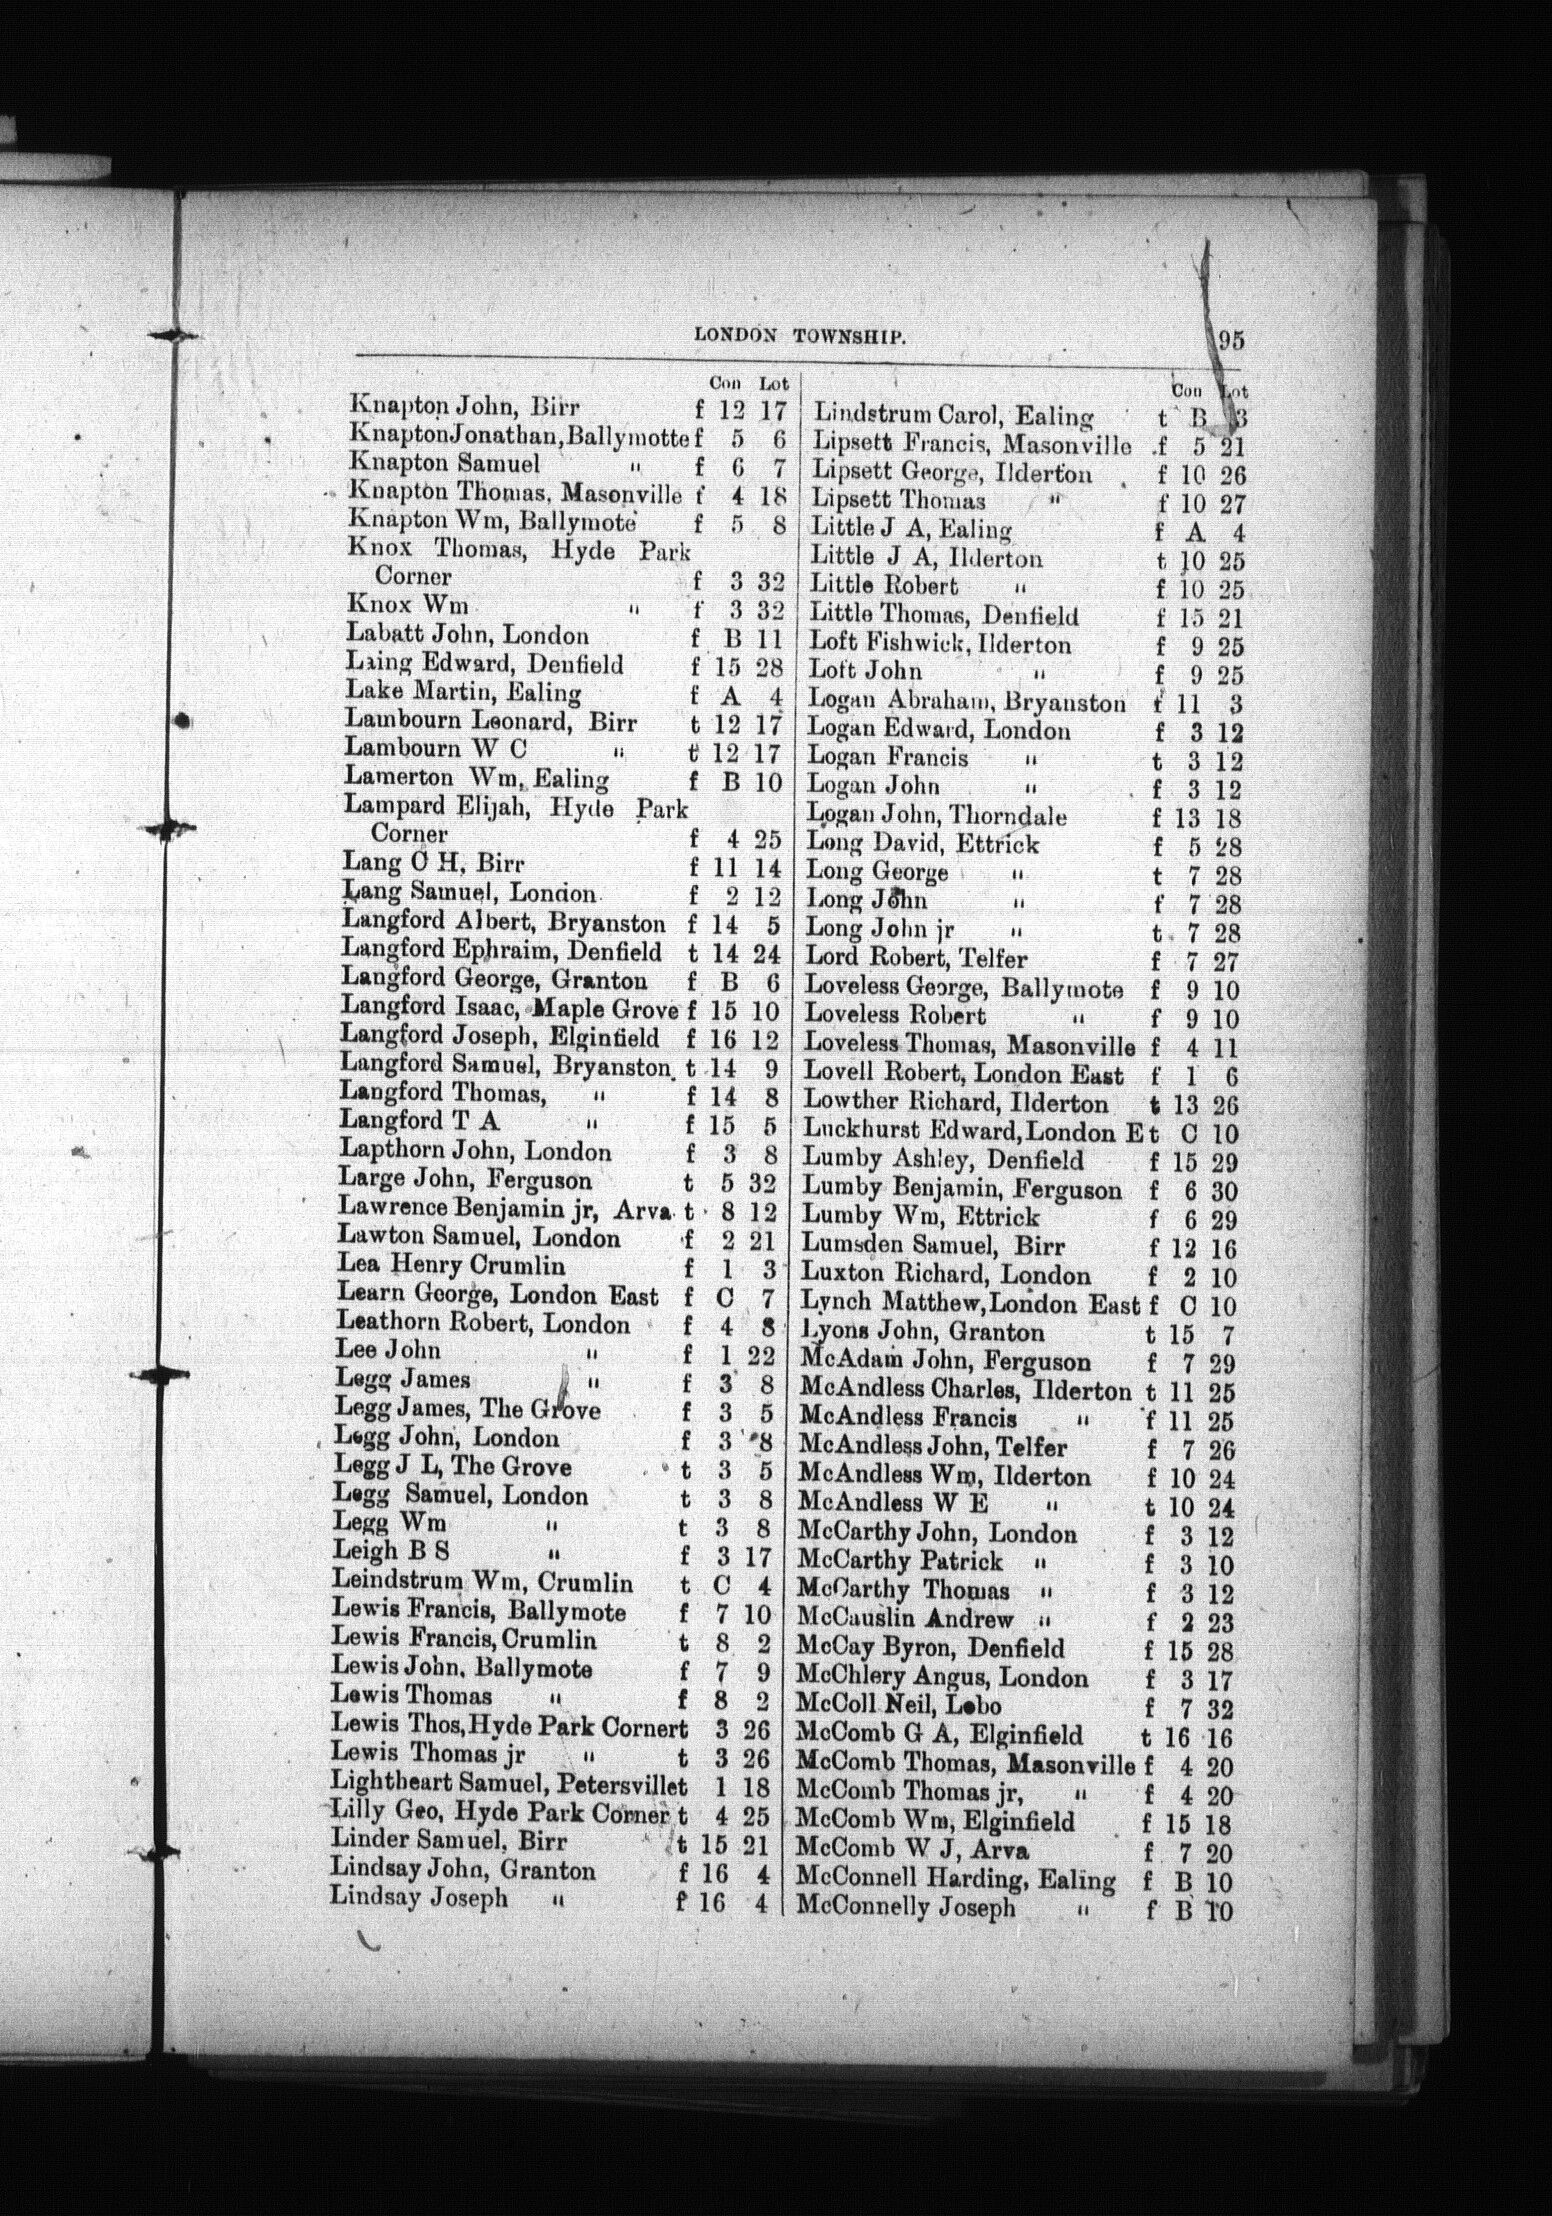 LONDON TOWNSHIP. 95
Con Lot
Knapton John, Birr f 12 17
Knapton Jonathan, Ballymotte f 5 6
Knapton Samuel " f 6 7
Knapton Thomas, Masonville f 4 18
Knapton Wm, Ballymote f 5 8
Knox Thomas, Hyde Park
Corner f 3 32
Knox Wm " f 3 32
Labatt John, London f B 11
Laing Edward, Denfield f 15 28
Lake Martin, Ealing f A 4
Lambourn Leonard, Birr t 12 17
Lambourn W C " t 12 17
Lamerton Wm, Ealing f B 10
Lampard Elijah, Hyde Park
Corner f 4 25
Lang C H, Birr f 11 14
Lang Samuel, London f 2 12
Langford Albert, Bryanston f 14 5
Langford Ephraim, Denfield t 14 24
Langford George, Granton f B 6
Langford Isaac, Maple Grove f 15 10
Langford Joseph, Elginfield f 16 12
Langford Samuel, Bryanston t 14 9
Langford Thomas, " f 14 8
Langford T A " f 15 5
Lapthorn John, London f 3 8
Large John, Ferguson t 5 32
Lawrence Benjamin jr, Arva t 8 12
Lawton Samuel, London f 2 21
Lea Henry Crumlin f 1 3
Learn George, London East f C 7
Leathorn Robert, London f 4 8
Lee John " f 1 22
Legg James " f 3 8
Legg James, The Grove f 3 5
Legg John, London f 3 8
Legg J L, The Grove t 3 5
Legg Samuel, London t 3 8
Legg Wm " t 3 8
Leigh B S " f 3 17
Leindstrum Wm, Crumlin t C 4
Lewis Francis, Ballymote f 7 10
Lewis Francis, Crumlin t 8 2
Lewis John, Ballymote f 7 9
Lewis Thomas " f 8 2
Lewis Thos, Hyde Park Corner t 3 26
Lewis Thomas jr " t 3 26
Lightheart Samuel, Petersville t 1 18
Lilly Geo, Hyde Park Corner t 4 25
Linder Samuel, Birr t 15 21
Lindsay John, Granton f 16 4
Lindsay Joseph " f 16 4
Con Lot
Lindstrum Carol, Ealing t B 3
Lipsett Francis, Masonville f 5 21
Lipsett George, Ilderton f 10 26
Lipsett Thomas " f 10 27
Little J A, Ealing f A 4
Little J A, Ilderton t 10 25
Little Robert " f 10 25
Little Thomas, Denfield f 15 21
Loft Fishwick, Ilderton f 9 25
Loft John " f 9 25
Logan Abraham, Bryanston f 11 3
Logan Edward, London f 3 12
Logan Francis " t 3 12
Logan John " f 3 12
Logan John, Thorndale f 13 18
Long David, Ettrick f 5 28
Long George " t 7 28
Long John " f 7 28
Long John jr " t 7 28
Lord Robert, Telfer f 7 27
Loveless George, Ballymote f 9 10
Loveless Robert " f 9 10
Loveless Thomas, Masonville f 4 11
Lovell Robert, London East f 1 6
Lowther Richard, Ilderton t 13 26
Luckhurst Edward, London E t C 10
Lumby Ashley, Denfield f 15 29
Lumby Benjamin, Ferguson f 6 30
Lumby Wm, Ettrick f 6 29
Lumsden Samuel, Birr f 12 16
Luxton Richard, London f 2 10
Lynch Matthew, London East f C 10
Lyons John, Granton t 15 7
McAdam John, Ferguson f 7 29
McAndless Charles, Ilderton t 11 25
McAndless Francis " f 11 25
McAndless John, Telfer f 7 26
McAndless Wm, Ilderton f 10 24
McAndless W E " t 10 24
McCarthy John, London f 3 12
McCarthy Patrick " f 3 10
McCarthy Thomas " f 3 12
McCauslin Andrew " f 2 23
McCay Byron, Denfield f 15 28
McChlery Angus, London f 3 17
McColl Neil, Lobo f 7 32
McComb G A, Elginfield t 16 16
McComb Thomas, Masonville f 4 20
McComb Thomas jr, " f 4 20
McComb Wm, Elginfield f 15 18
McComb W J, Arva f 7 20
McConnell Harding, Ealing f B 10
McConnelly Joseph " f B 10